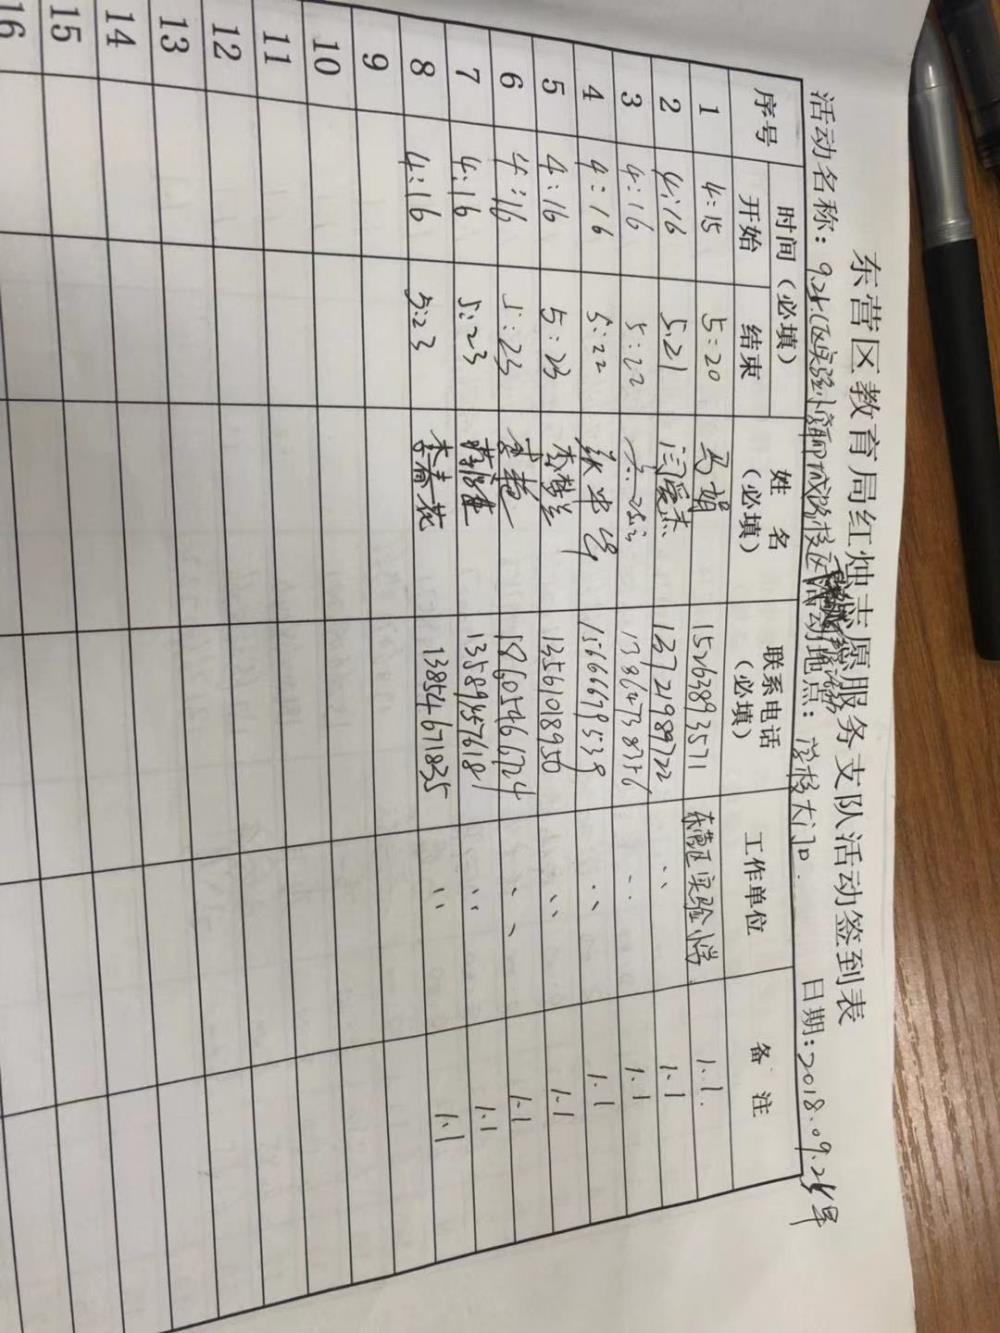 东营区教育局红烛志愿服务支队活动签到表
活动名称：区实验小学聊城路校区 活动地点：学校大门口 日期：2018.09.25
序号 时间（必填） 姓名（必填） 联系电话（必填） 工作单位 备注
开始 结束
1 4:15 5:20 马娟 15263893571 东营区实验小学 1.1
2 4:16 5:21 闫爱杰 13721989722 〃 1.1
3 4:16 5:22 〃 1.1
4 4:16 5:22 15666679539 〃 1.1
5 4:16 5:23 李梦兰 13561018950 〃 1.1
6 4:16 5:23 李艳 18605466724 〃 1.1
7 4:16 5:23 13589457618 〃 1.1
8 4:16 5:23 李春花 13854671835 〃 1.1
9
10
11
12
13
14
15
16